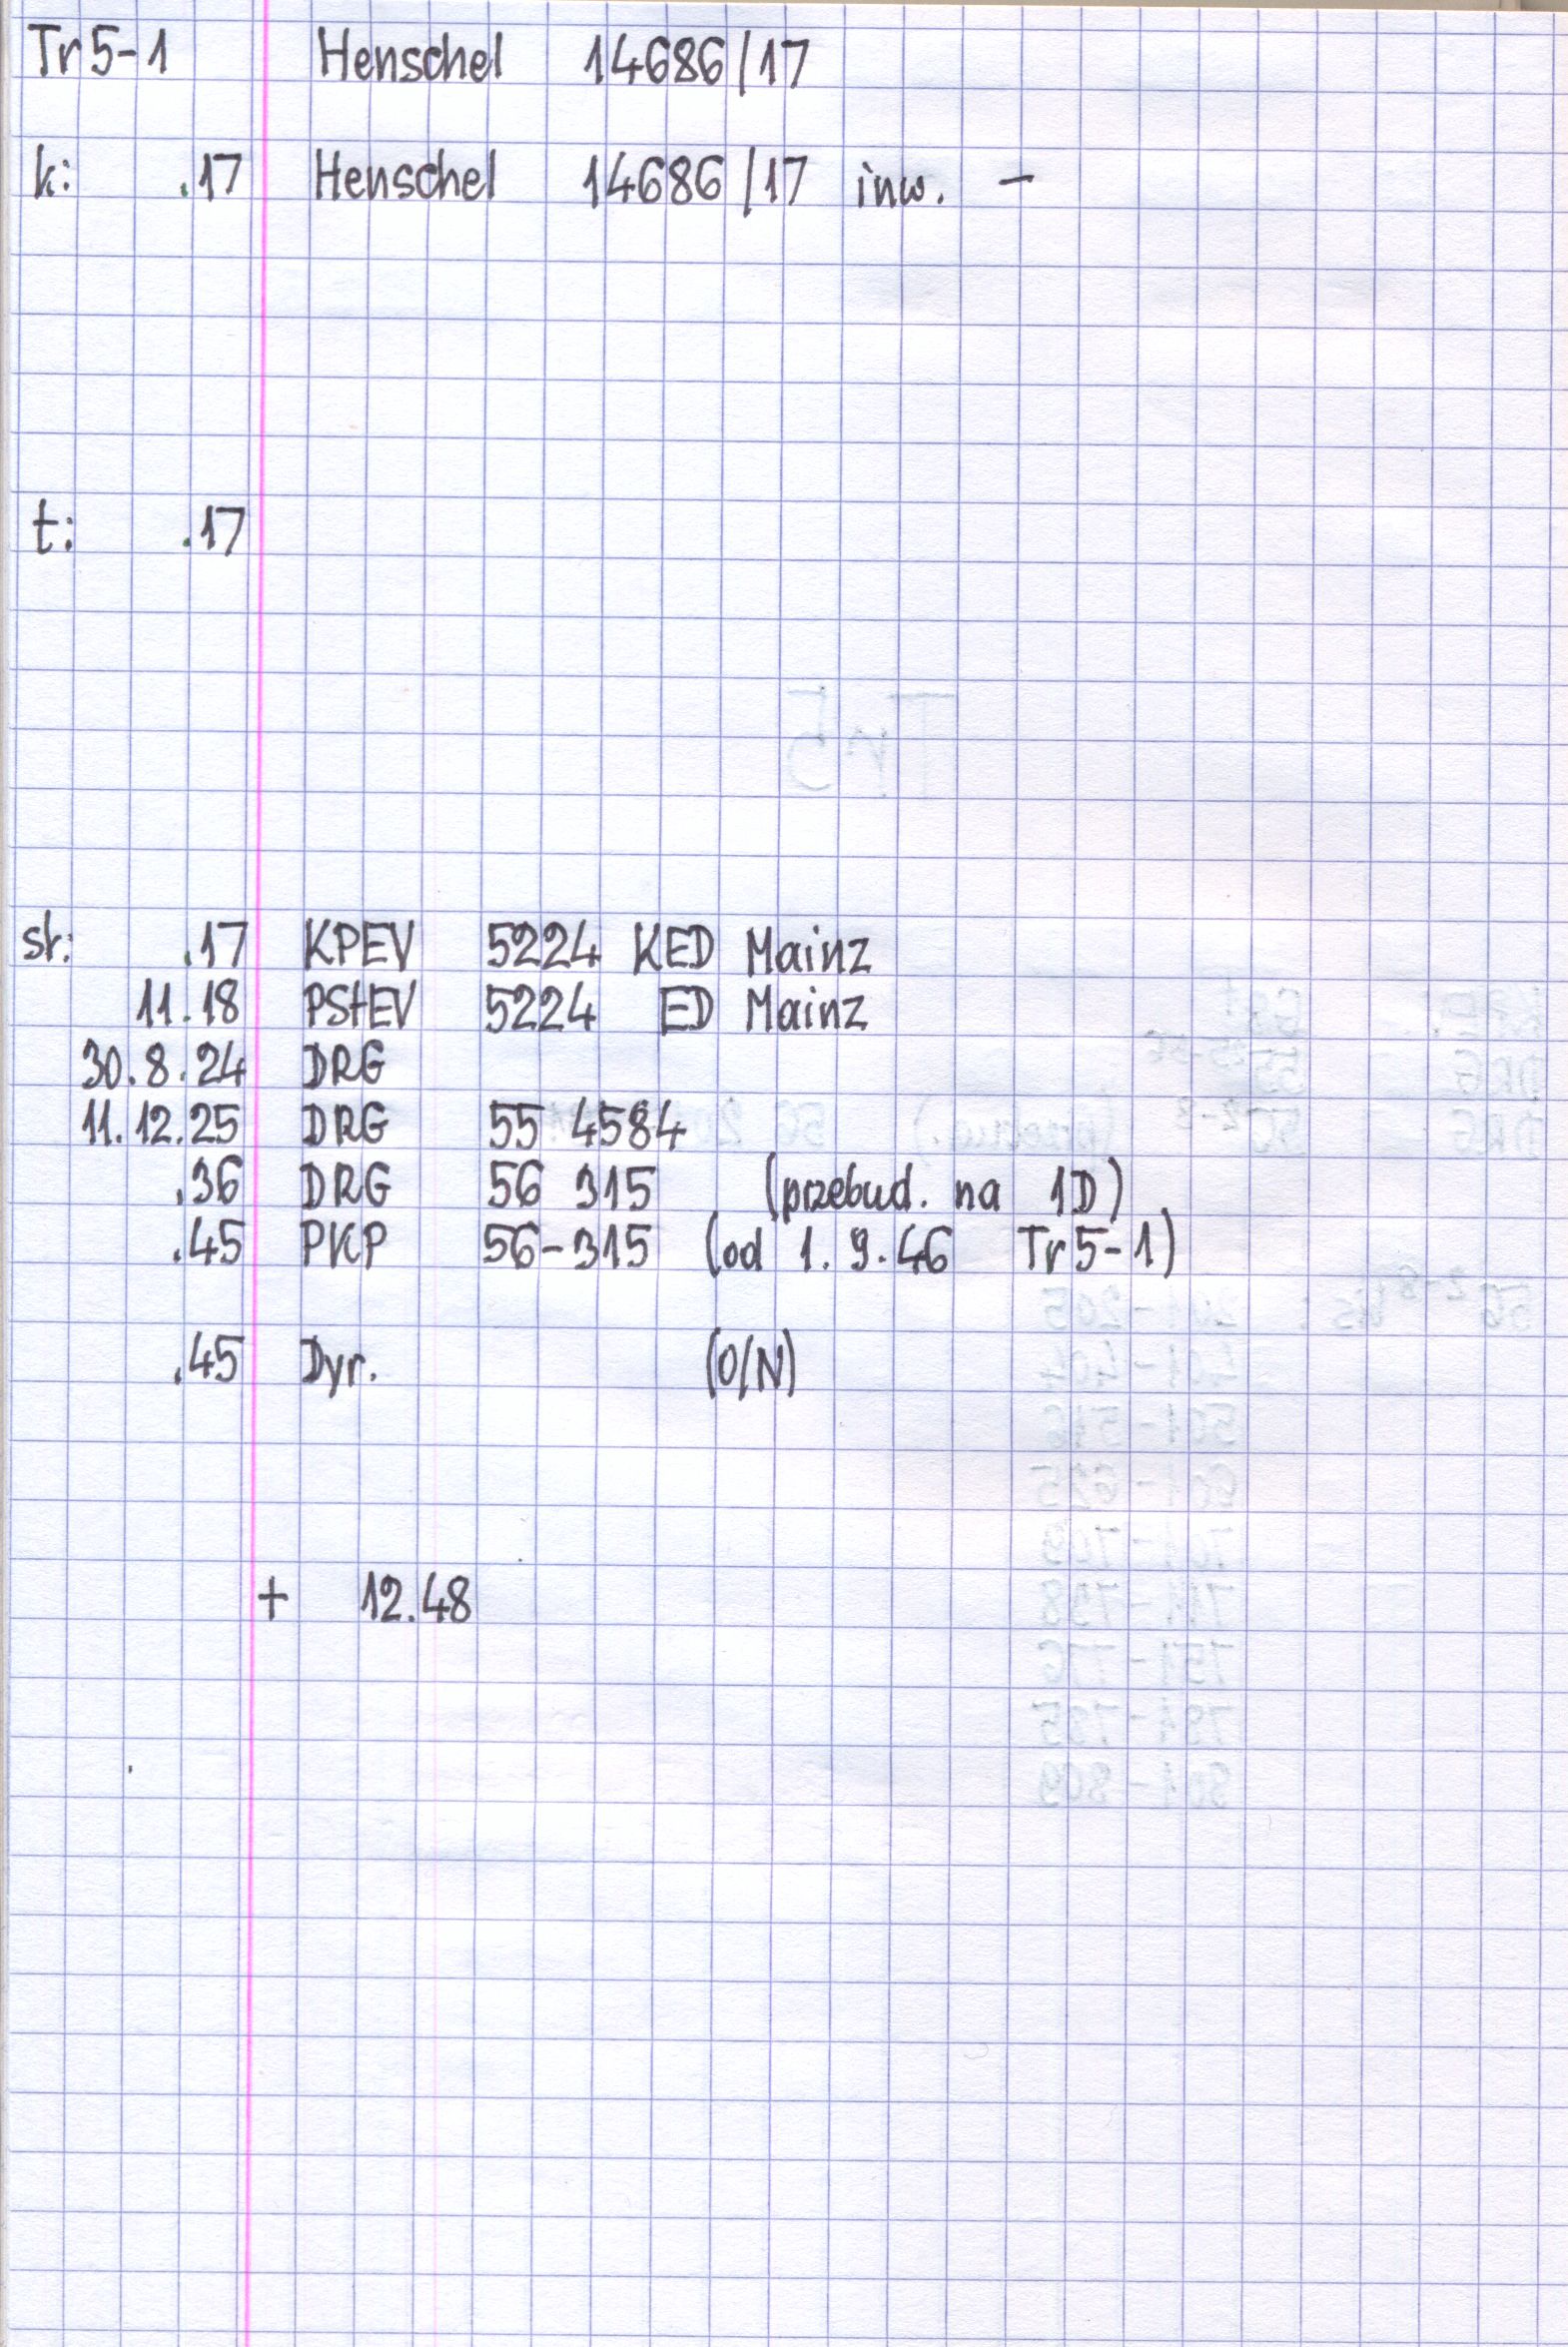 Tr5-1 Henschel 14686/17
k: .17 Henschel 14686/17 inw. -
t: .17
Tr5
st: .17 KPEV 5224 KED Mainz
11.18 PStEV 5224 ED Mainz
30.8.24 DRG
11.12.25 DRG 55 4584
.36 DRG 56 315 (przebud. na 1D)
.45 PKP 56-315 (od 1.9.46 Tr5-1)
.45 Dyr. (O/N)
+ 12.48